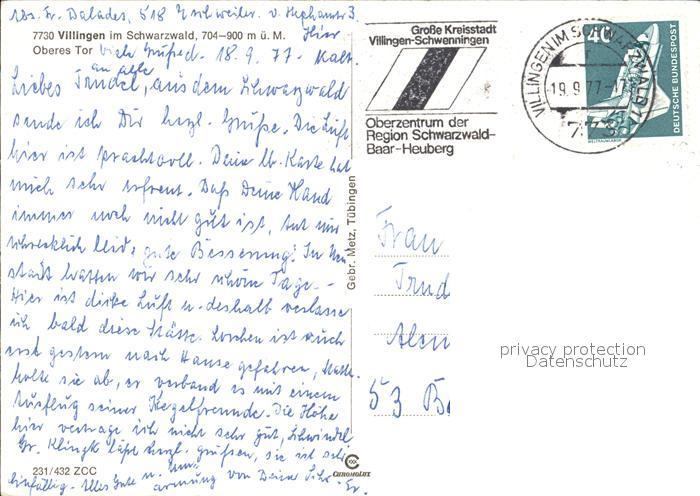 7730 Villingen im Schwarzwald, 704–900 m ü. M.
Oberes Tor Viele Grüße 18.9.77 -
an alle
Liebes Trudel, aus dem Schwarzwald
sende ich Dir herzl. Grüße. Die Luft
hier ist prachtvoll. Deine lb. Karte hat
mich sehr erfreut. Daß Deine Hand
immer noch nicht gut ist, tut mir
schrecklich leid, gute Besserung! In Neu
stadt hatten wir sehr schöne Tage. -
Hier ist dicke Luft u. deshalb verlasse
ich bald diese Stätte. Lorchen ist auch
erst gestern nach Hause gefahren,
holte sie ab, er verband es mit einem
Ausflug seiner Kegelfreunde. Die Höhe
hier vertrage ich nicht sehr gut, Schwindel
Gr. läßt herzl. grüßen, sie ist sehr
hinfällig. Alles Gute u. Um-
armung von Deine
231/432 ZCC
Gebr. Metz, Tübingen
CHROMOLUX
Große Kreisstadt
Villingen-Schwenningen
Oberzentrum der
Region Schwarzwald-
Baar-Heuberg
VILLINGEN IM SCHWARZWALD 1
19.9.77
773
40
DEUTSCHE BUNDESPOST
WELTRAUMLABOR
Frau
Trud
53 Bo
privacy protection
Datenschutz